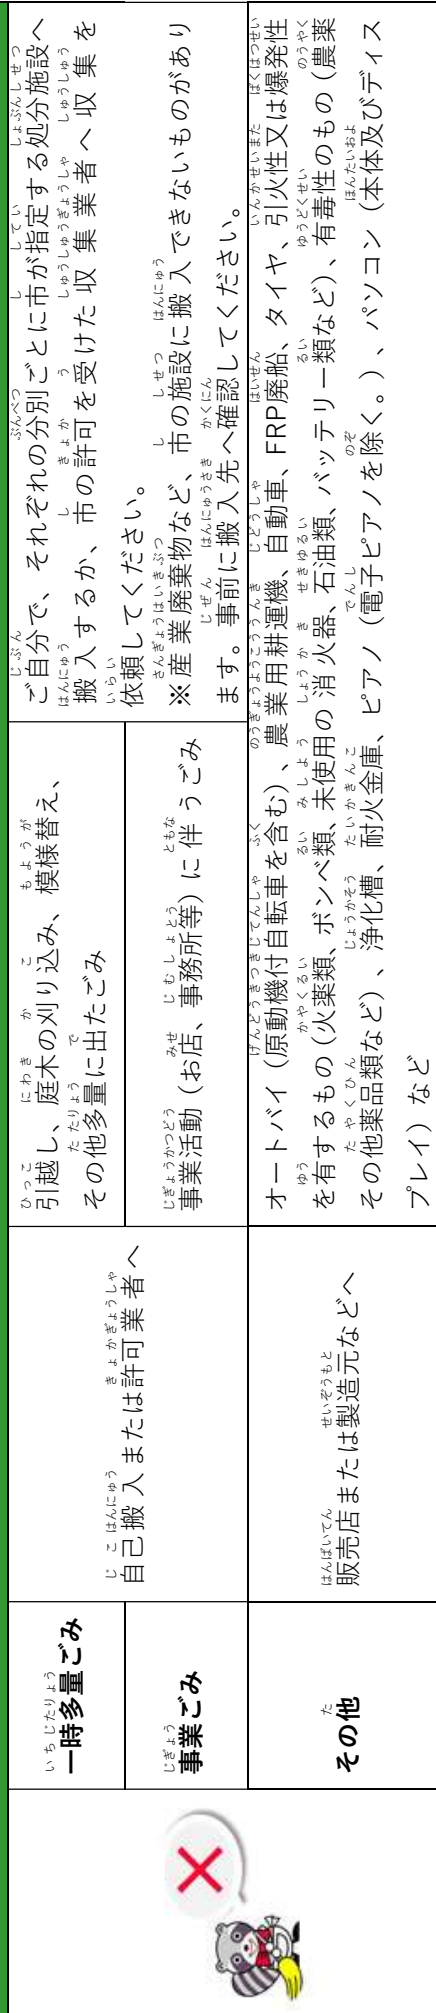 一時多量ごみ
自己搬入または許可業者へ
引越し、庭木の刈り込み、模様替え、
その他多量に出たごみ
ご自分で、それぞれの分別ごとに市が指定する処分施設へ
搬入するか、市の許可を受けた収集業者へ収集を
依頼してください。
※産業廃棄物など、市の施設に搬入できないものがあり
ます。事前に搬入先へ確認してください。
事業ごみ
事業活動（お店、事務所等）に伴うごみ
その他
販売店または製造元などへ
オートバイ（原動機付自転車を含む）、農業用耕運機、自動車、FRP廃船、タイヤ、引火性又は爆発性
を有するもの（火薬類、ボンベ類、未使用の消火器、石油類、バッテリー類など）、有毒性のもの（農薬
その他薬品類など）、浄化槽、耐火金庫、ピアノ（電子ピアノを除く。）、パソコン（本体及びディス
プレイ）など